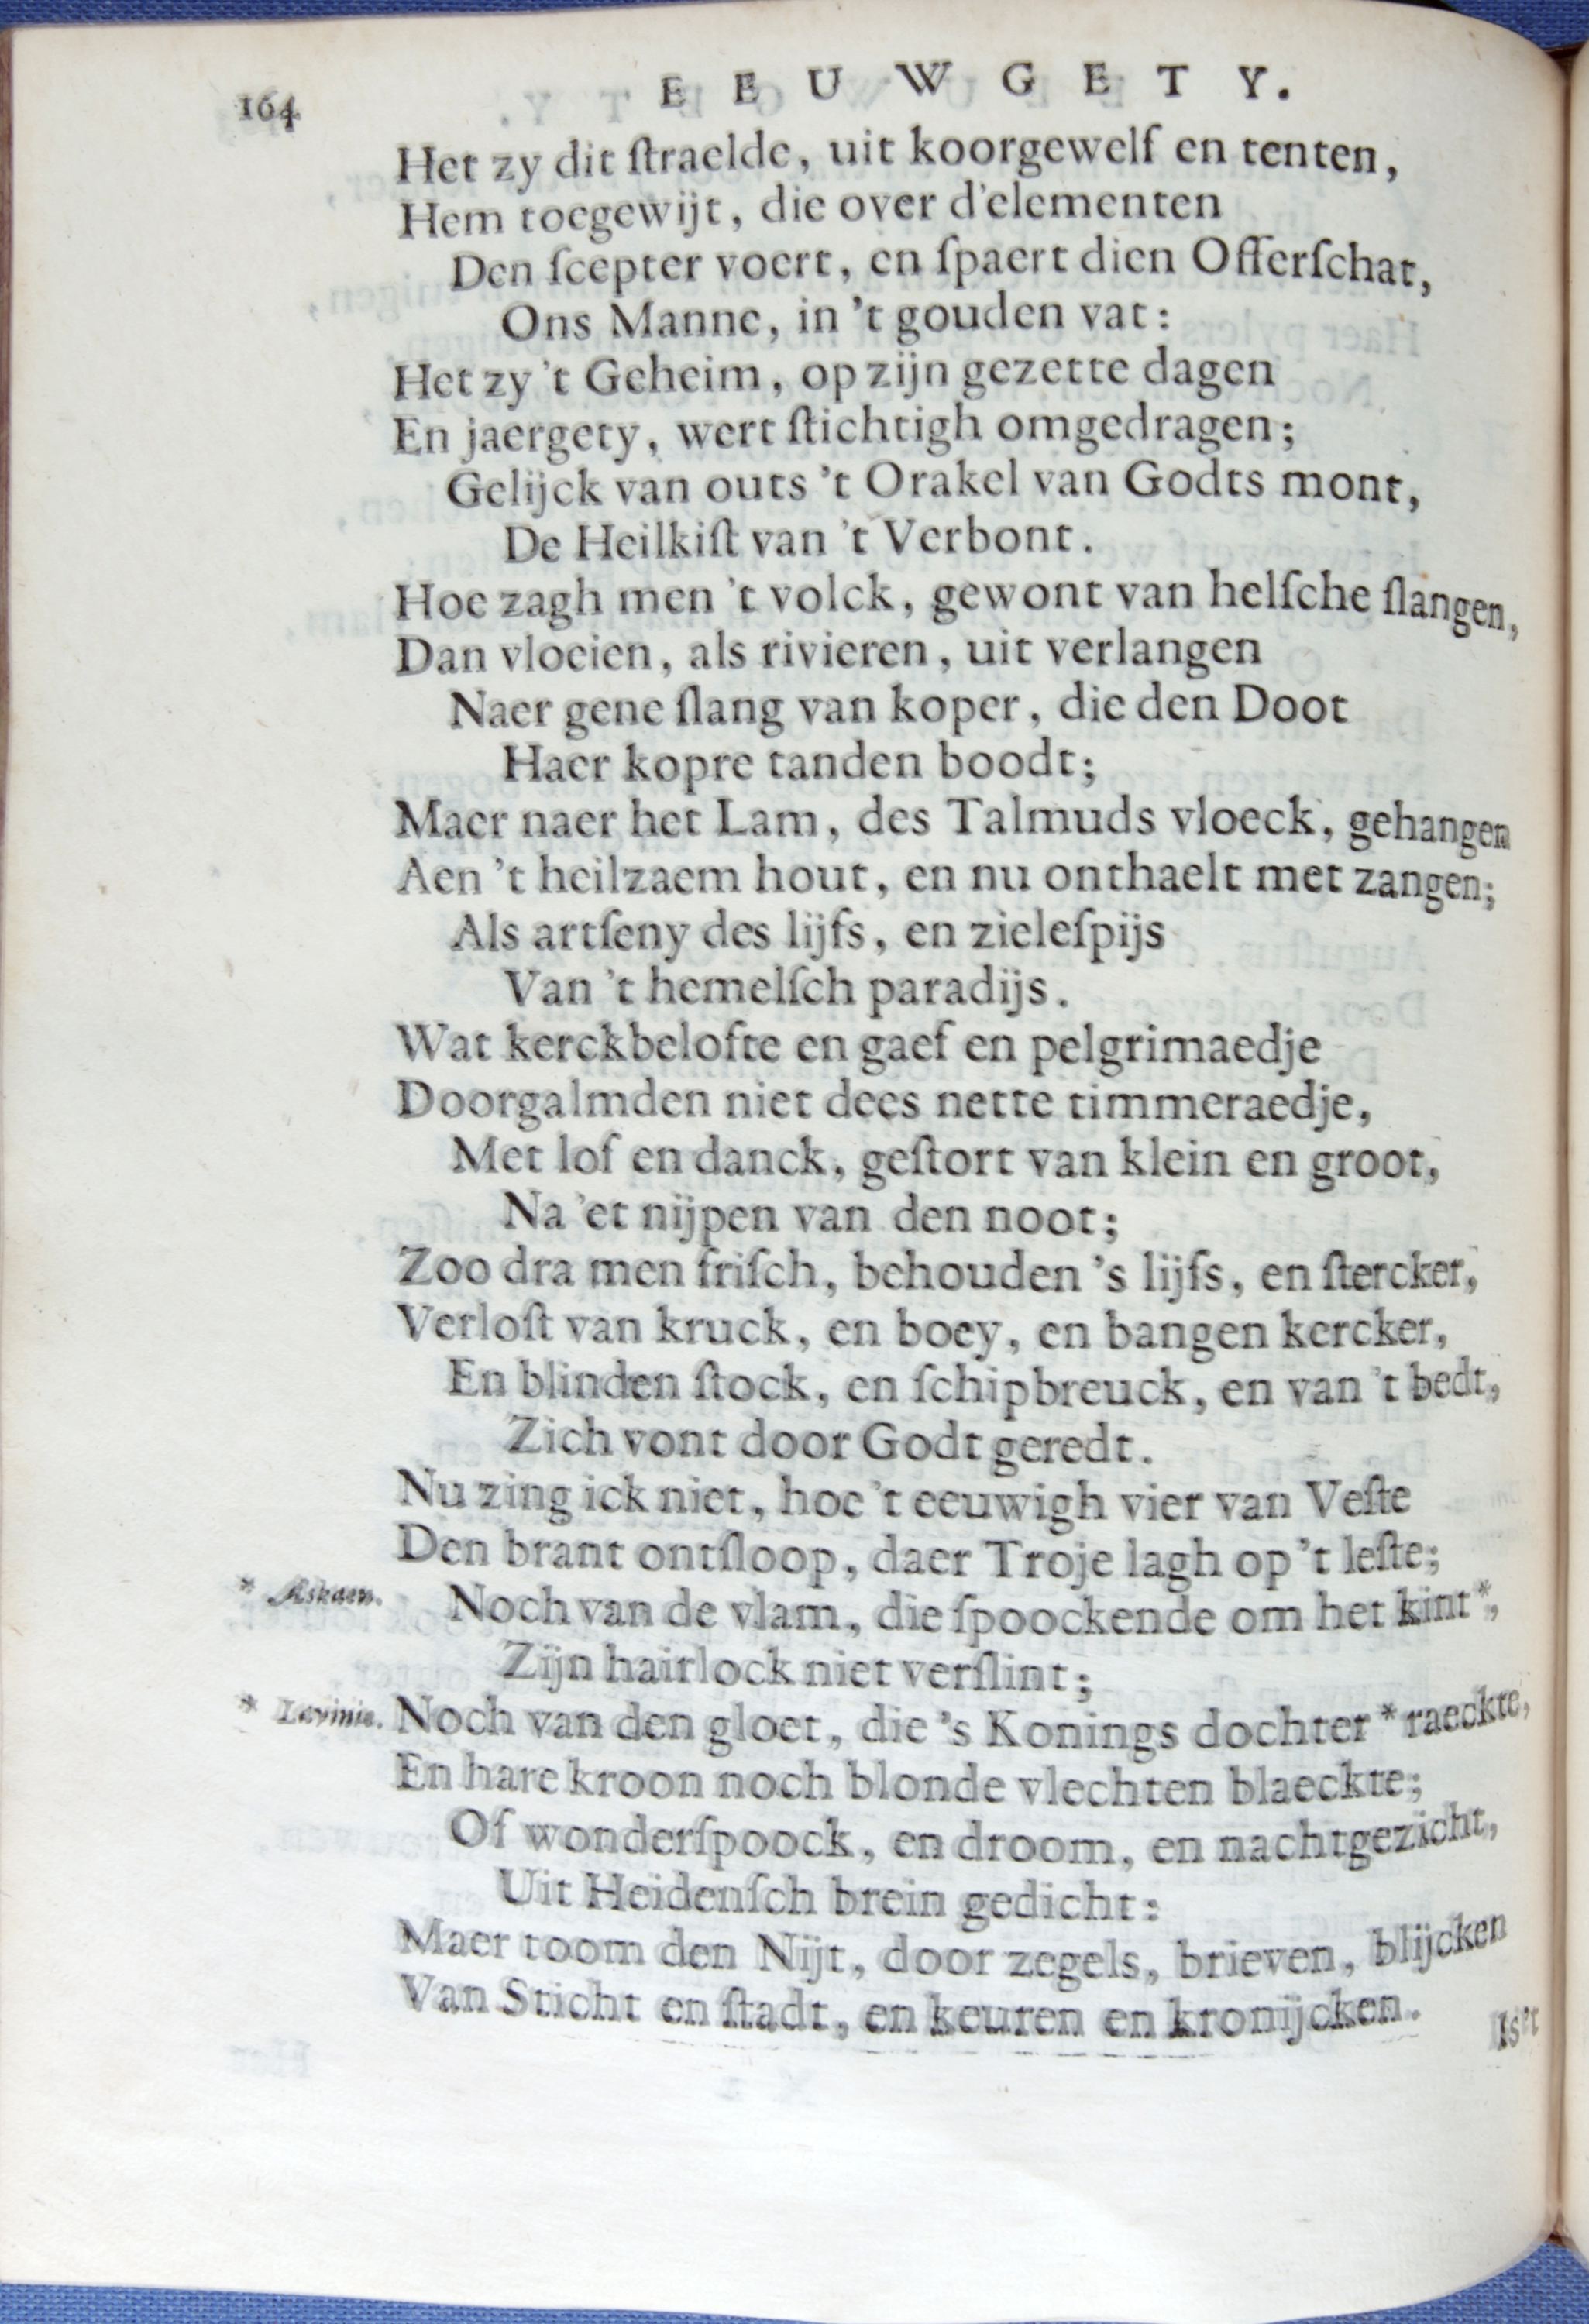 164
EEUWGETY.
Het zy dit ſtraelde, uit koorgewelf en tenten,
Hem toegewijt, die over d'elementen
Den ſcepter voert, en ſpaert dien Offerſchat,
Ons Manne, in 't gouden vat:
Het zy 't Geheim, op zijn gezette dagen
En jaergety, wert ſtichtigh omgedragen;
Gelijck van outs 't Orakel van Godts mont,
De Heilkiſt van 't Verbont.
Hoe zagh men 't volck, gewont van helſche ſlangen,
Dan vloeien, als rivieren, uit verlangen
Naer gene ſlang van koper, die den Doot
Haer kopre tanden boodt;
Maer naer het Lam, des Talmuds vloeck, gehangen
Aen 't heilzaem hout, en nu onthaelt met zangen;
Als artſeny des lijfs, en zieleſpijs
Van 't hemelſch paradijs.
Wat kerckbelofte en gaef en pelgrimaedje
Doorgalmden niet dees nette timmeraedje,
Met lof en danck, geſtort van klein en groot,
Na 'et nijpen van den noot;
Zoo dra men friſch, behouden 's lijfs, en ſtercker,
Verloſt van kruck, en boey, en bangen kercker,
En blinden ſtock, en ſchipbreuck, en van 't bedt,
Zich vont door Godt geredt.
Nu zing ick niet, hoe 't eeuwigh vier van Veſte
Den brant ontſloop, daer Troje lagh op 't leſte;
* Askaen. Noch van de vlam, die ſpoockende om het kint*,
Zijn hairlock niet verſlint;
* Lavinie. Noch van den gloet, die 's Konings dochter * raeckte,
En hare kroon noch blonde vlechten blaeckte;
Of wonderſpoock, en droom, en nachtgezicht,
Uit Heidenſch brein gedicht:
Maer toom den Nijt, door zegels, brieven, blijcken
Van Sticht en ſtadt, en keuren en kronijcken.
Is't